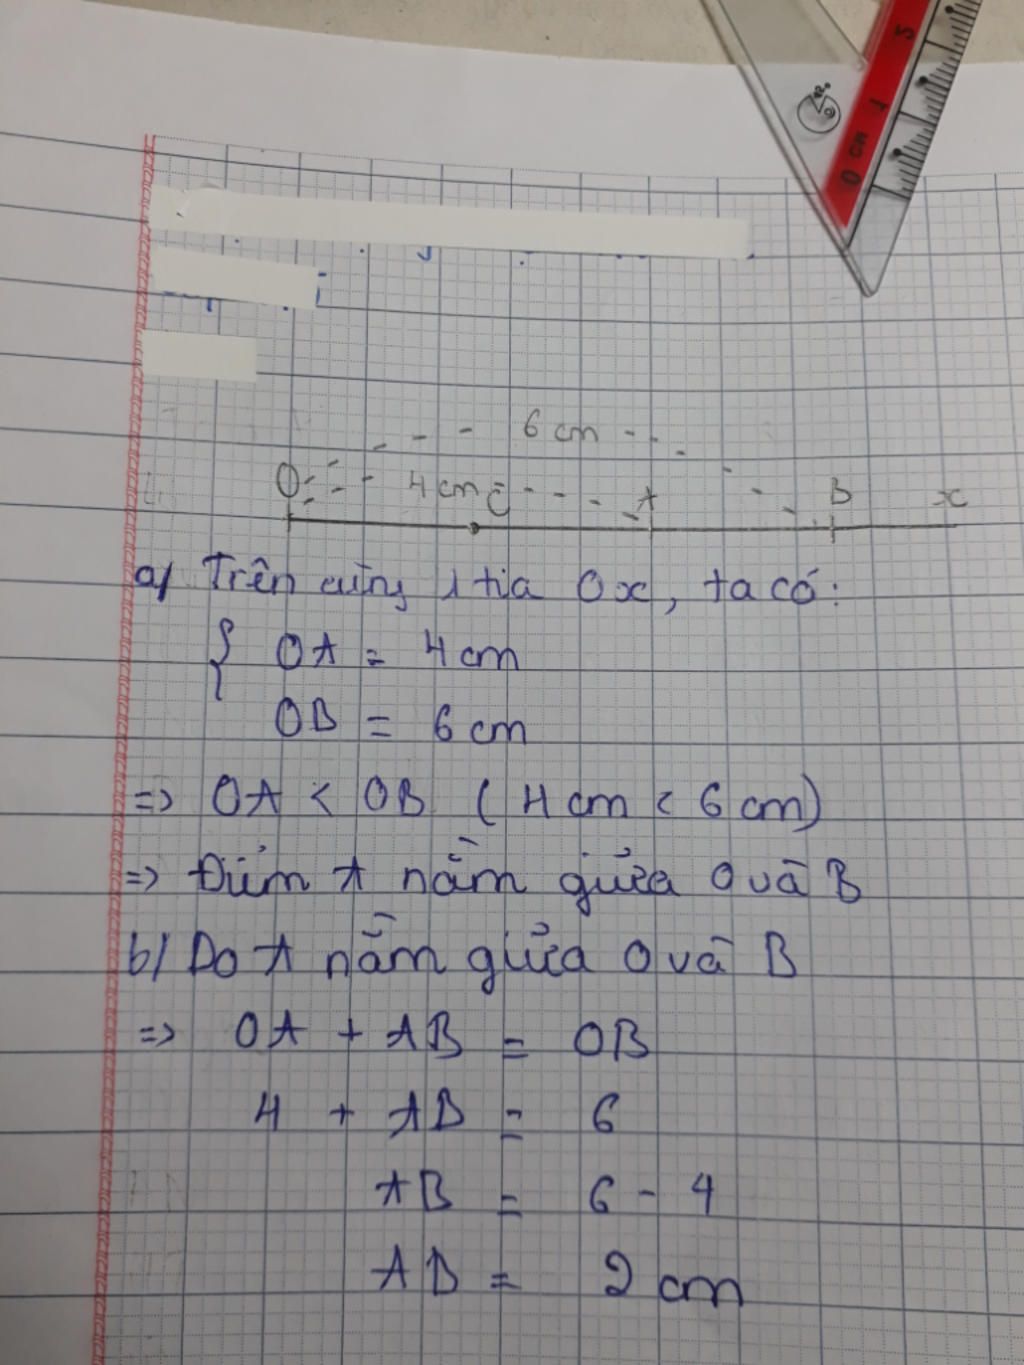 0 CM 1 2
6 cm
O 4 cm C A B x
a/ Trên cùng 1 tia Ox, ta có:
{ OA = 4 cm
OB = 6 cm
=> OA < OB (4 cm < 6 cm)
=> Điểm A nằm giữa O và B
b/ Do A nằm giữa O và B
=> OA + AB = OB
4 + AB = 6
AB = 6 - 4
AB = 2 cm